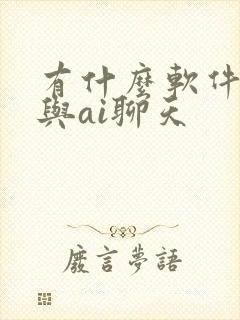 有什麼軟件
與ai聊天
廢言夢語